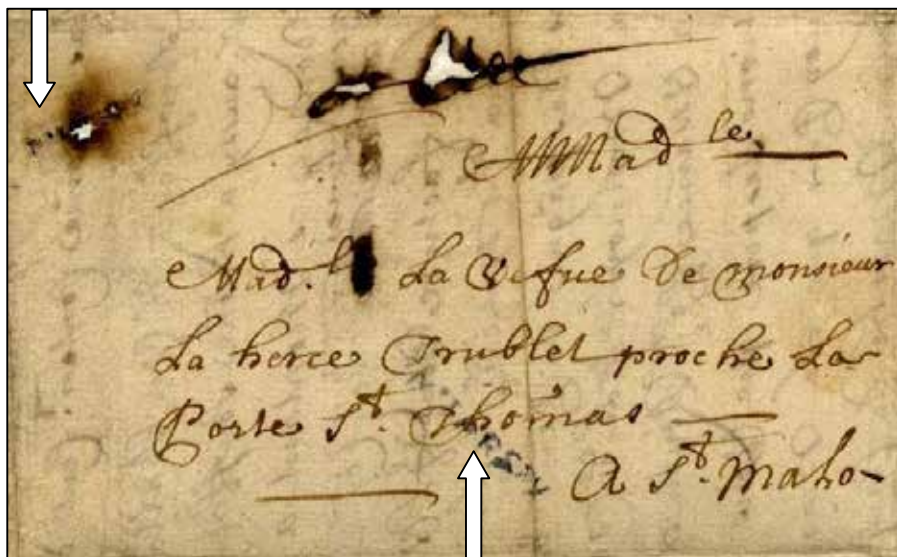 A Mad le
Mad. le La Vefue De monsieur
La herce Trublet proche La
Porte St. Thomas
A St. malo